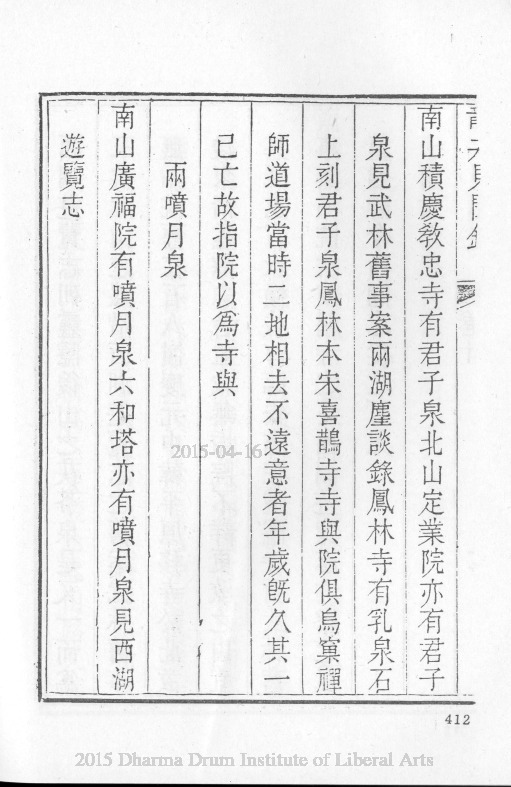 南山積慶敎忠寺有君子泉北山定業院亦有君子
泉見武林舊事案兩湖麈談錄鳳林寺有乳泉石
上刻君子泉鳳林本宋喜鵲寺寺與院俱鳥窠禪
師道場當時二地相去不遠意者年歲旣久其一
已亡故指院以爲寺與
兩噴月泉
南山廣福院有噴月泉六和塔亦有噴月泉見西湖
遊覽志
2015-04-16
412
2015 Dharma Drum Institute of Liberal Arts